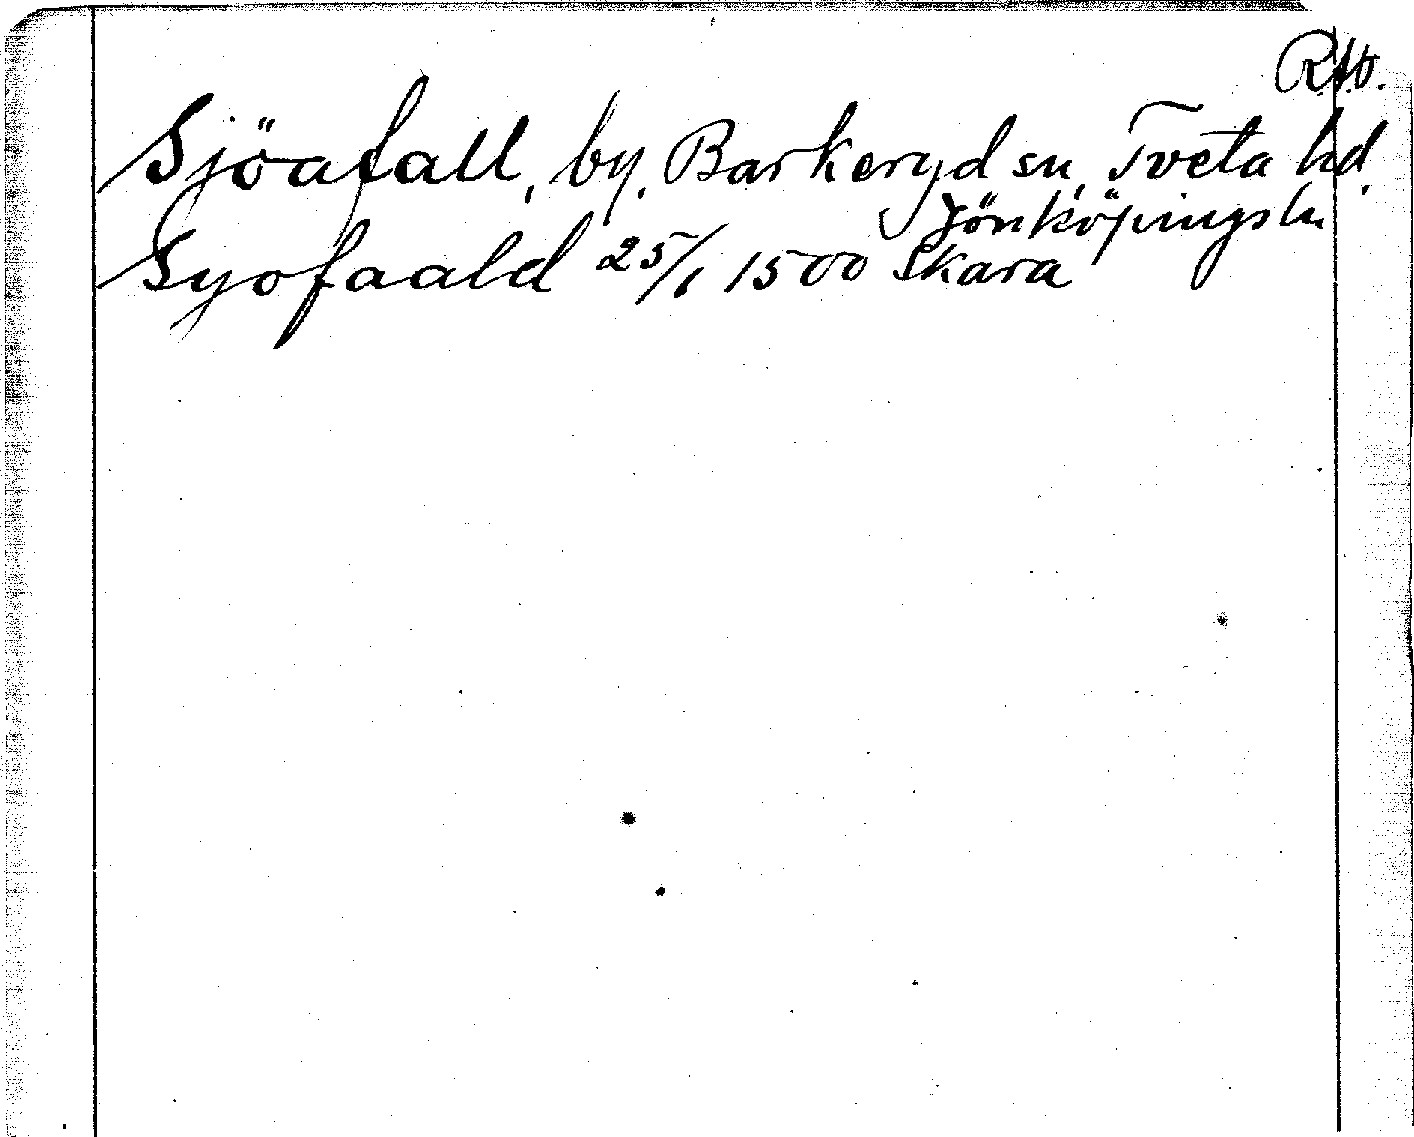 Sjöafall, by, Barkeryd sn, Tveta hd,
Jönköpings ln
Syofaald 25/1 1500 Skara